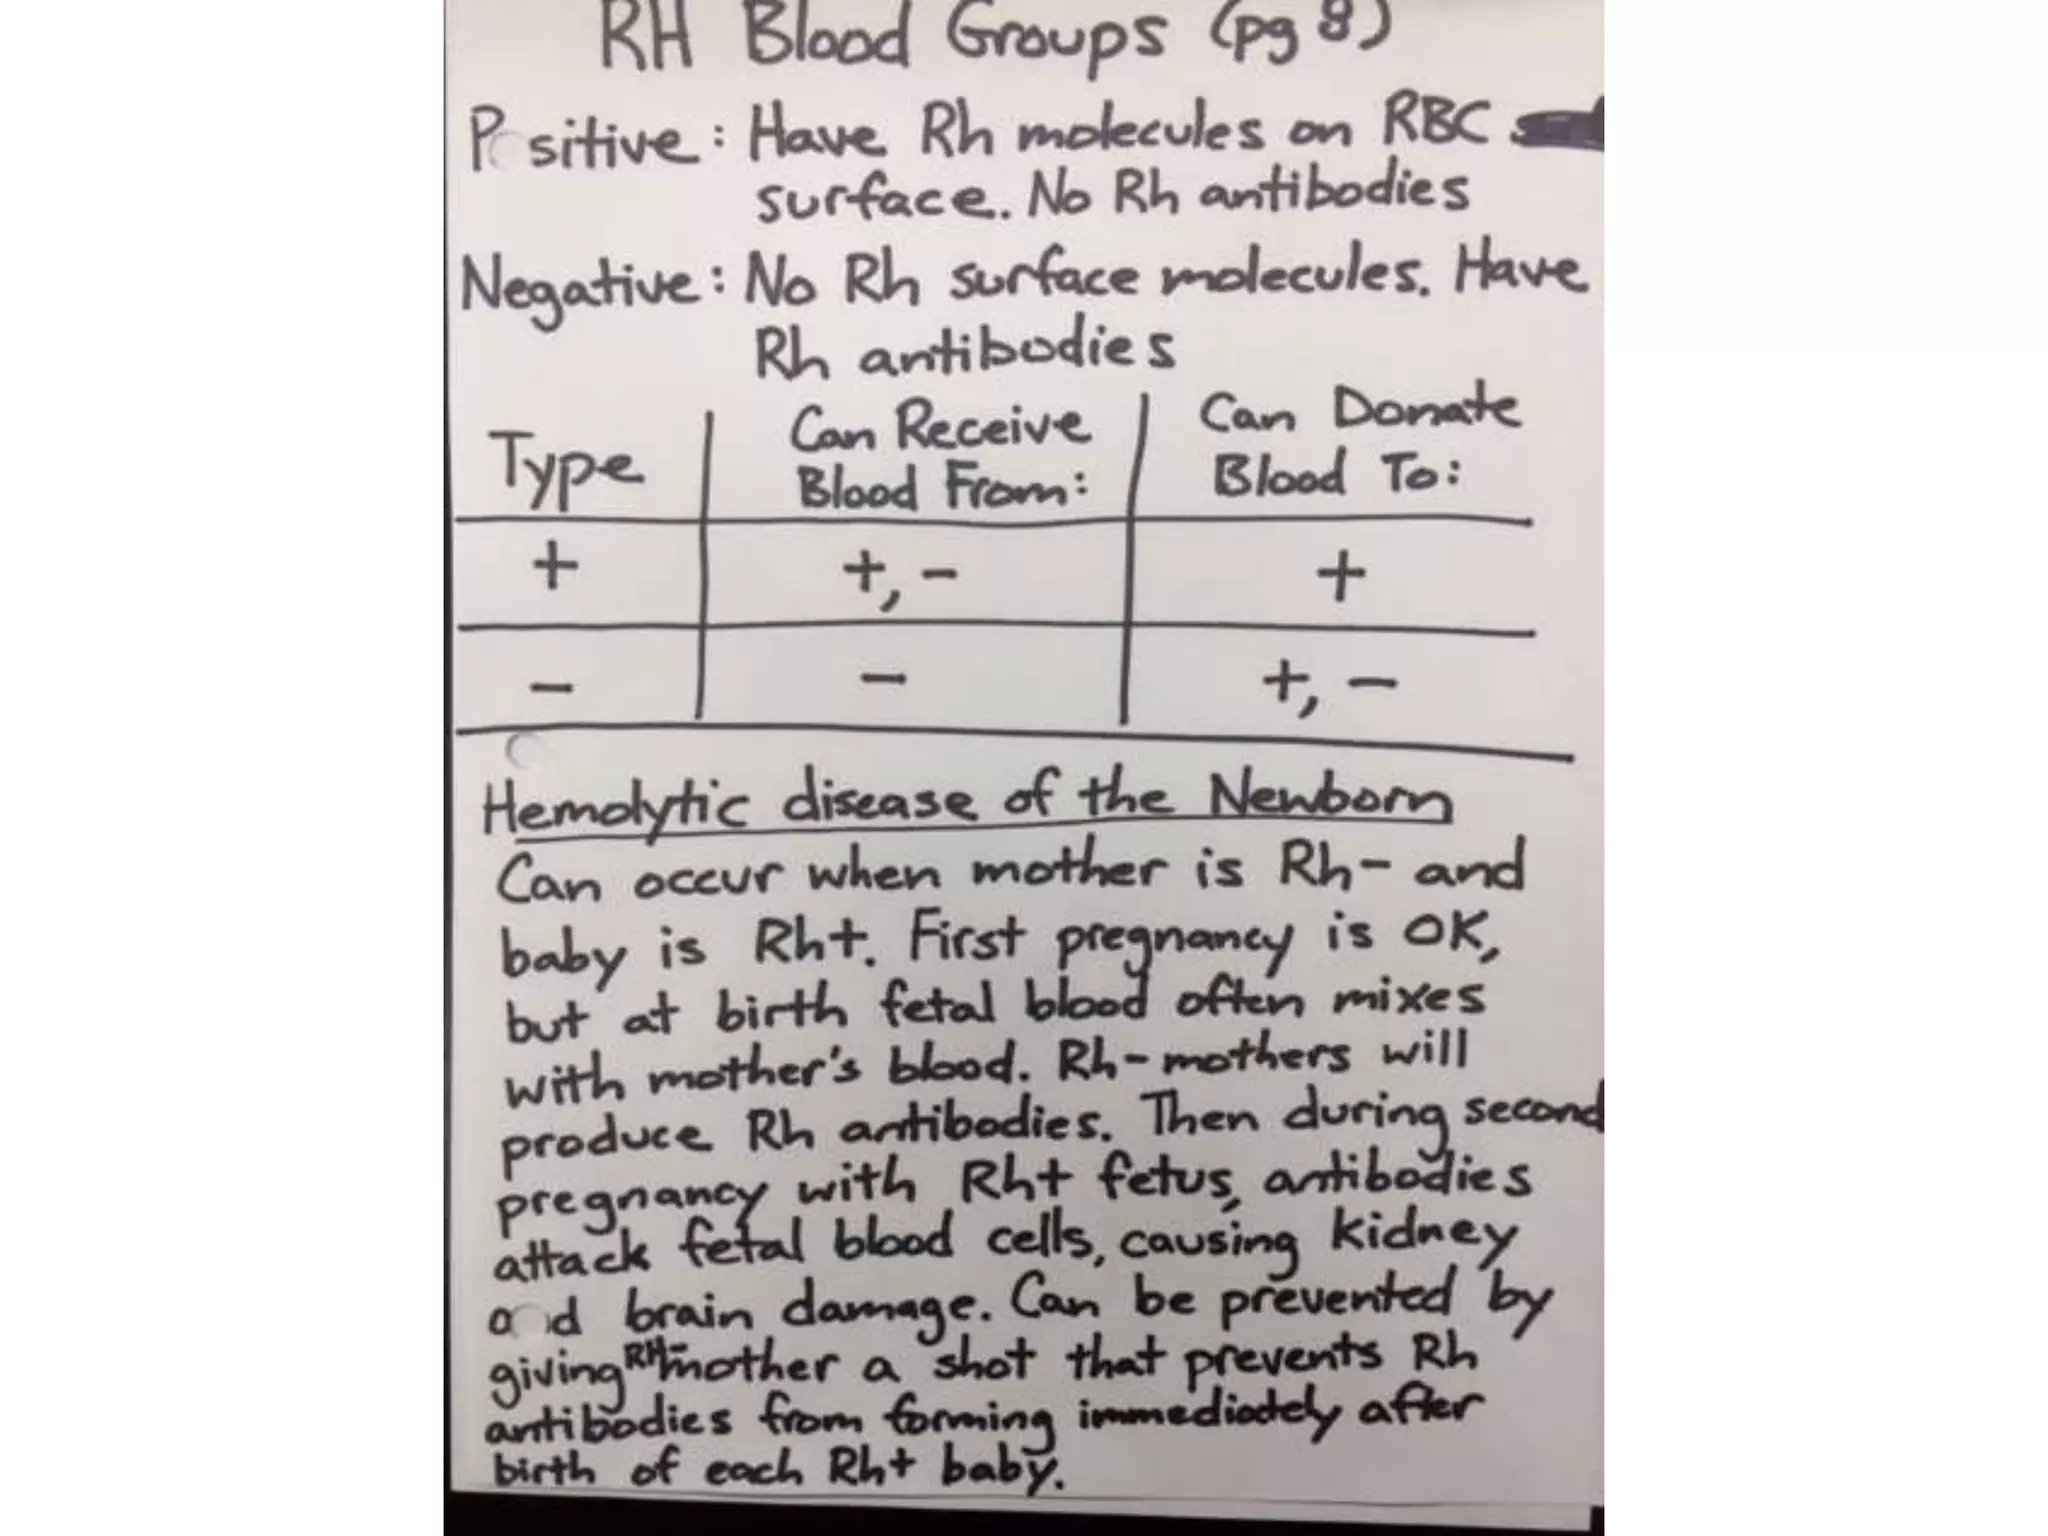 RH Blood Groups (pg 8)
Positive: Have Rh molecules on RBC
surface. No Rh antibodies
Negative: No Rh surface molecules. Have
Rh antibodies
Type Can Receive Blood From: Can Donate Blood To:
+ +, - +
- - +, -
Hemolytic disease of the Newborn
Can occur when mother is Rh- and
baby is Rh+. First pregnancy is OK,
but at birth fetal blood often mixes
with mother's blood. Rh- mothers will
produce Rh antibodies. Then during second
pregnancy with Rh+ fetus, antibodies
attack fetal blood cells, causing kidney
and brain damage. Can be prevented by
giving RH- mother a shot that prevents Rh
antibodies from forming immediately after
birth of each Rh+ baby.